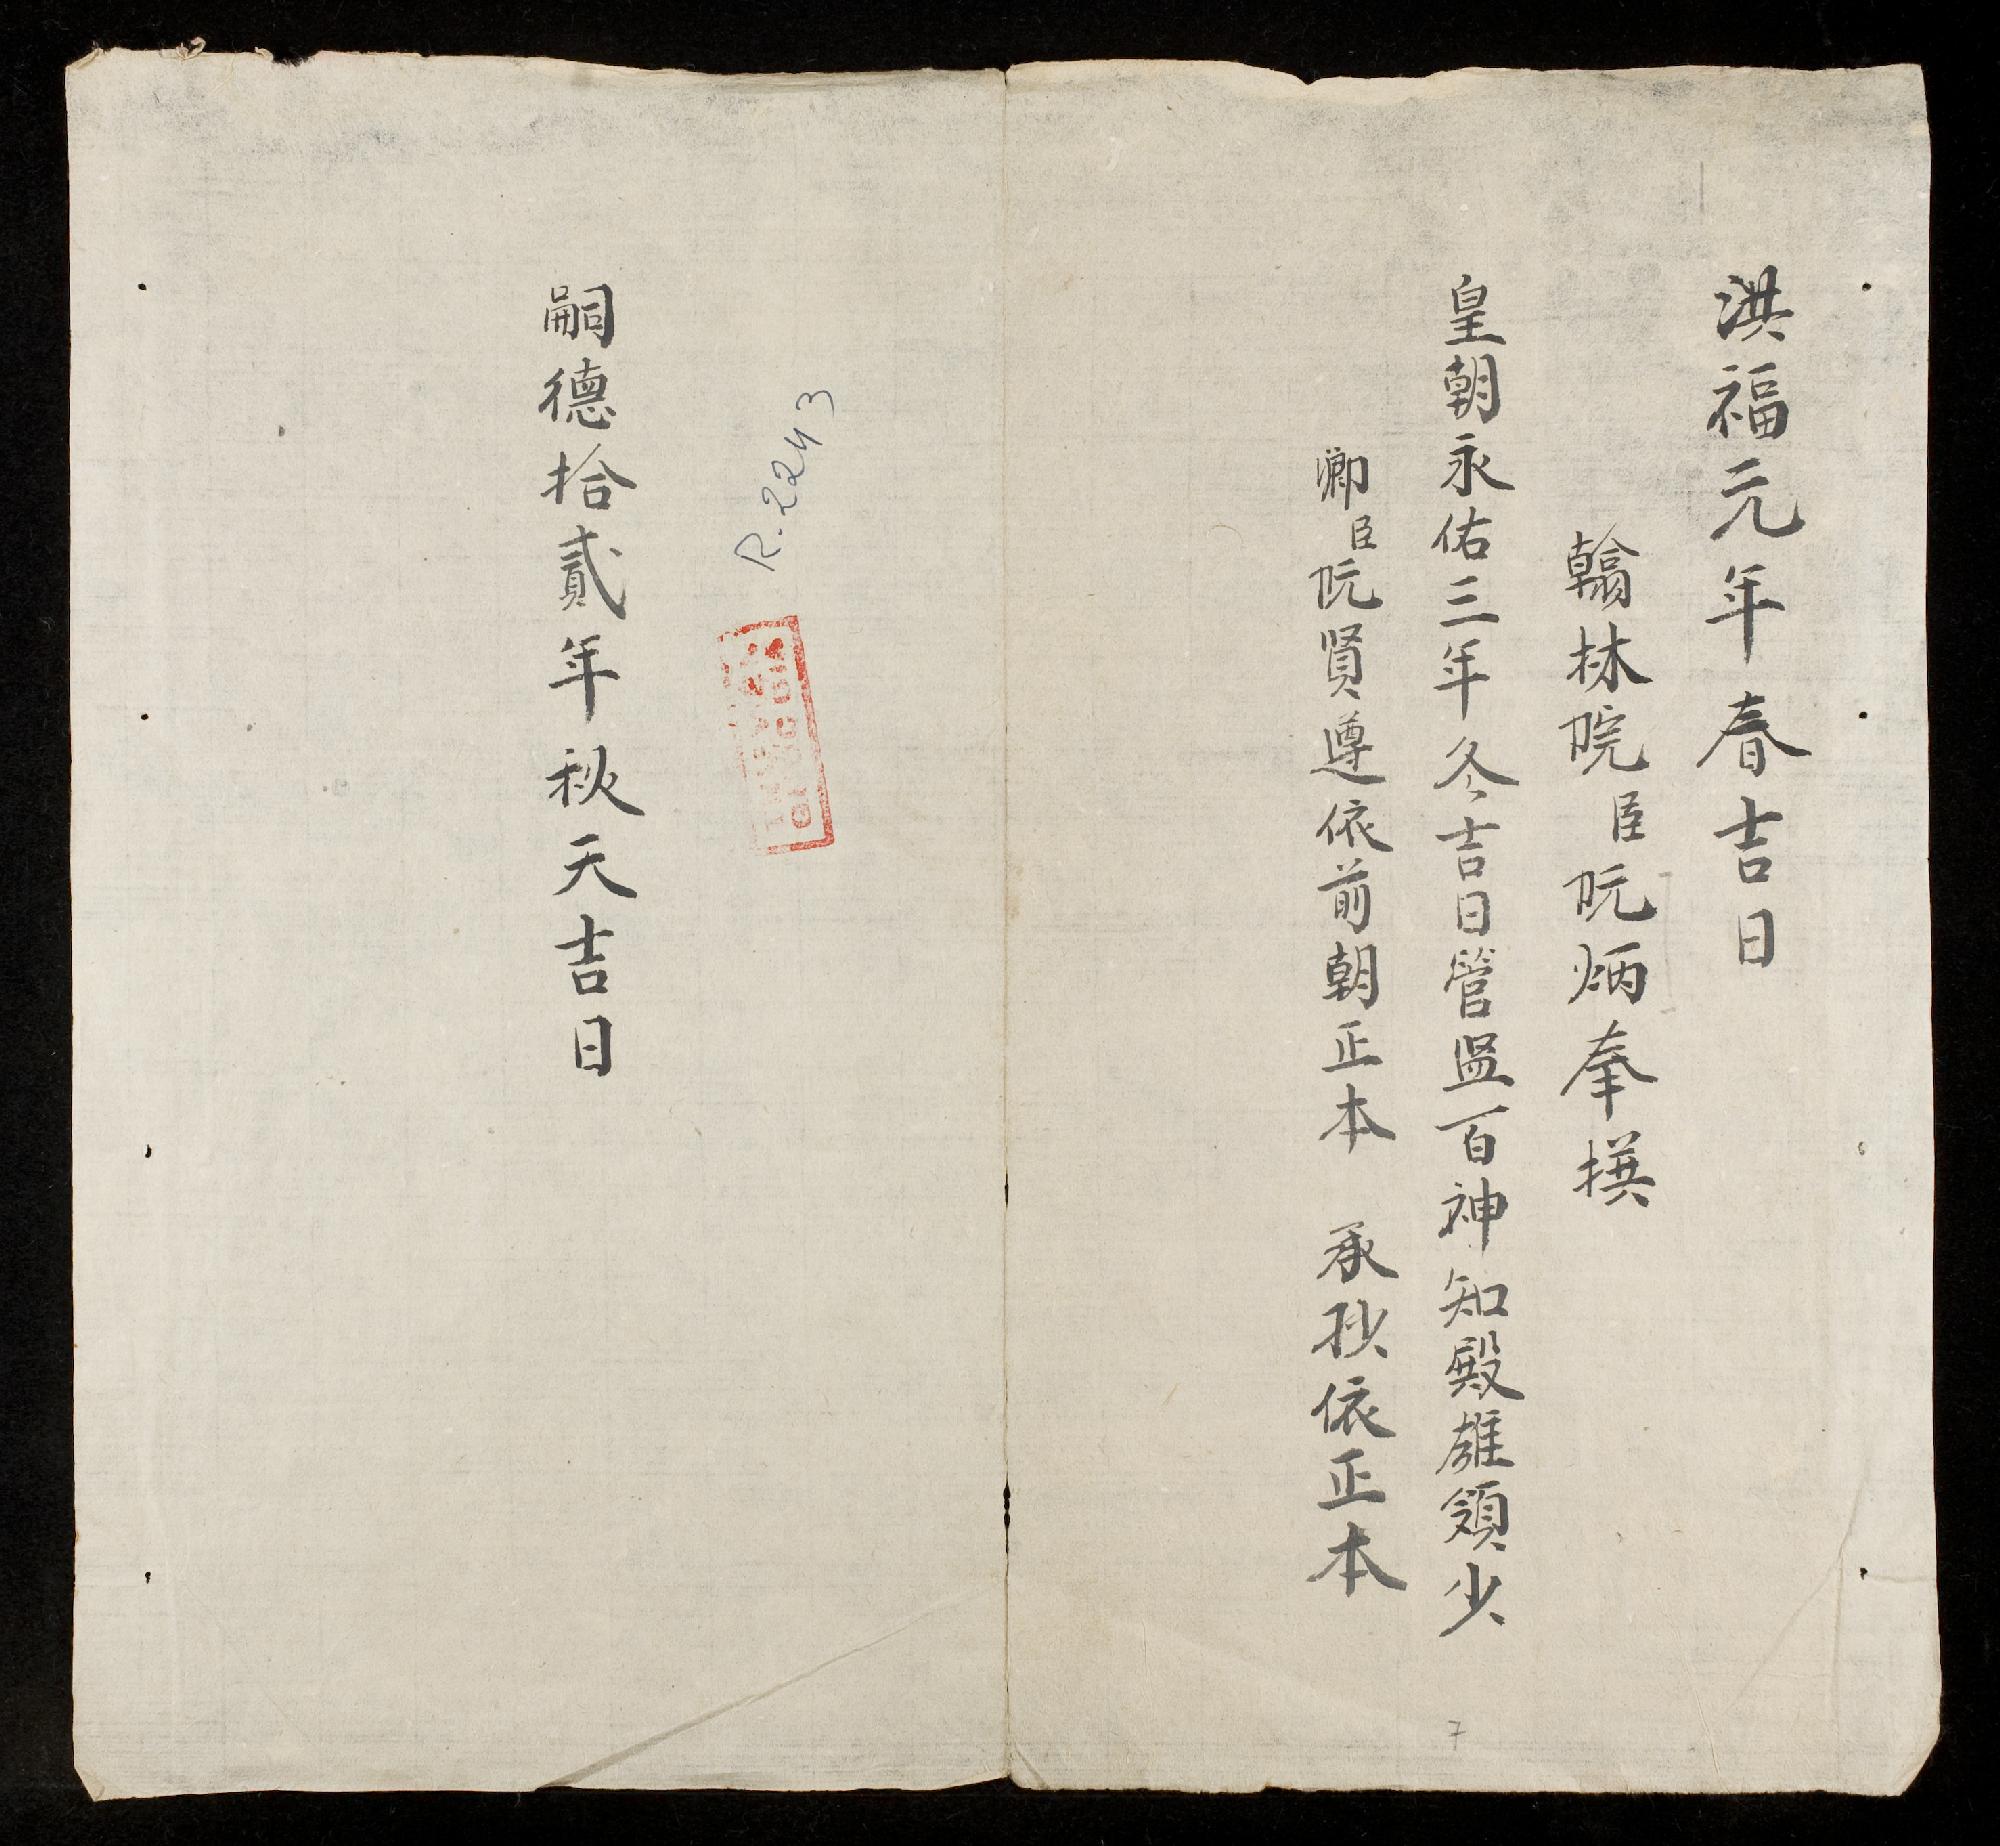 洪福元年春吉日
翰林院臣阮炳奉撰
皇朝永佑三年冬吉日管监百神知殿雄領少
卿臣阮賢遵依前朝正本 承抄依正本
R.2243
嗣德拾貳年秋天吉日
7